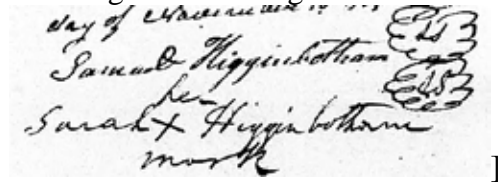 day of November
Samuel Higginbotham LS
her
Sarah X Higginbotham LS
mark